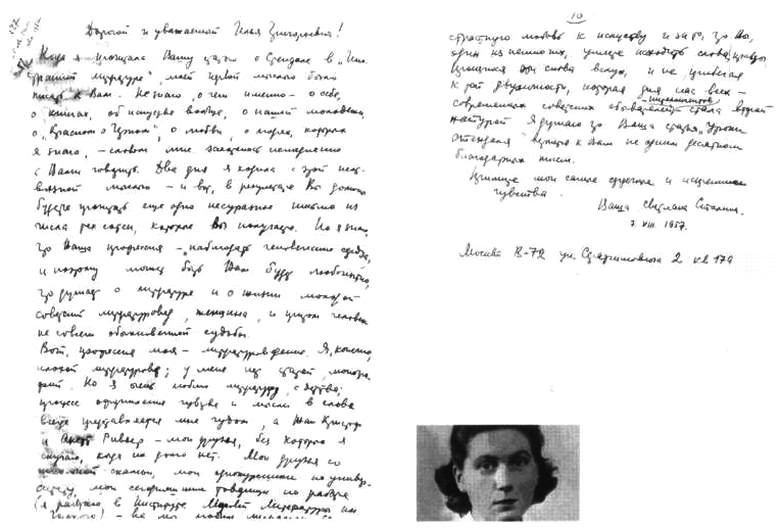 Дорогой и уважаемый Илья Григорьевич!
Когда я прочитала Вашу статью о Стендале в "Ино-
странной литературе", моей первой мыслью было
писать к Вам. Не знаю, о чем именно – о себе,
о книгах, об искусстве вообще, о нашей молодежи,
о "Красном и Черном", о любви, о людях, которых
я знаю, – словом мне захотелось немедленно
с Вами говорить. Два дня я ходила с этой неот-
вязной мыслью – и вот, в результате Вы должны
будете прочитать еще одно несуразное письмо из
числа тех сотен, которые Вы получаете. Но я знаю,
что Ваша профессия – наблюдать человеческие сердца,
и поэтому может быть Вам будет любопытно,
что думает о литературе и о жизни молодой
советский литературовед, женщина, и притом человек
не совсем обыкновенной судьбы.
Вот, профессия моя – литературоведение. Я, конечно,
плохой литературовед; у меня нет статей, моногра-
фий. Но я очень люблю литературу с детства;
процесс облачения чувства и мысли в слова
всегда представляется мне чудом, а Жан Кристоф
и Аннет Ривьер – мои друзья, без которых я
скучаю, когда их долго нет. Мои друзья со
школьной скамьи, мои однокурсники по универ-
ситету, мои сегодняшние товарищи по работе
(я работаю в Институте Мировой Литературы им.
Горького) – все мы любим
10
страстную любовь к искусству и за то, что Вы,
один из немногих, умеете находить слова правды,
произносить эти слова вслух, и не прибегая
к той двуличности, которая для нас всех –
современных советских интеллигентов стала второй
натурой. Я думаю что Ваша статья "Уроки
Стендаля" вернется к Вам не одним десятком
благодарных писем.
Примите мои самые сердечные и искренние
чувства.
Ваша Светлана Сталина.
7. VIII. 1957.
Москва В-72 ул. Серафимовича 2 кв 179